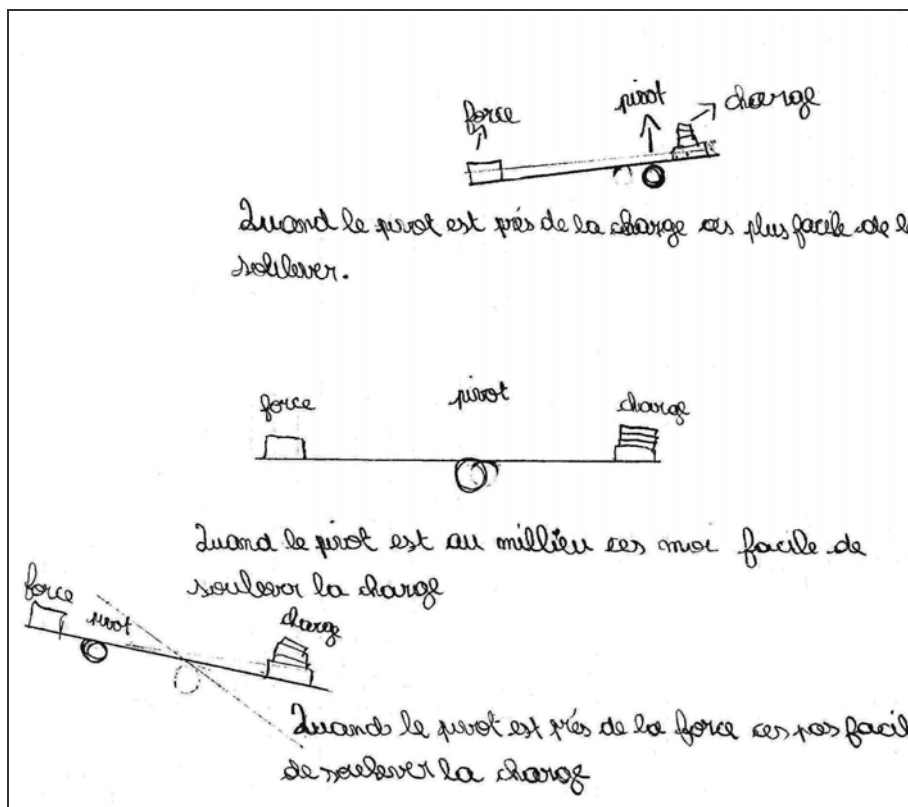 force pivot charge
Quand le pivot est près de la charge ces plus facile de l
soulever.
force pivot charge
Quand le pivot est au millieu ces moi facile de
soulever la charge
force pivot charge
Quand le pivot est près de la force ces pas facil
de soulever la charge